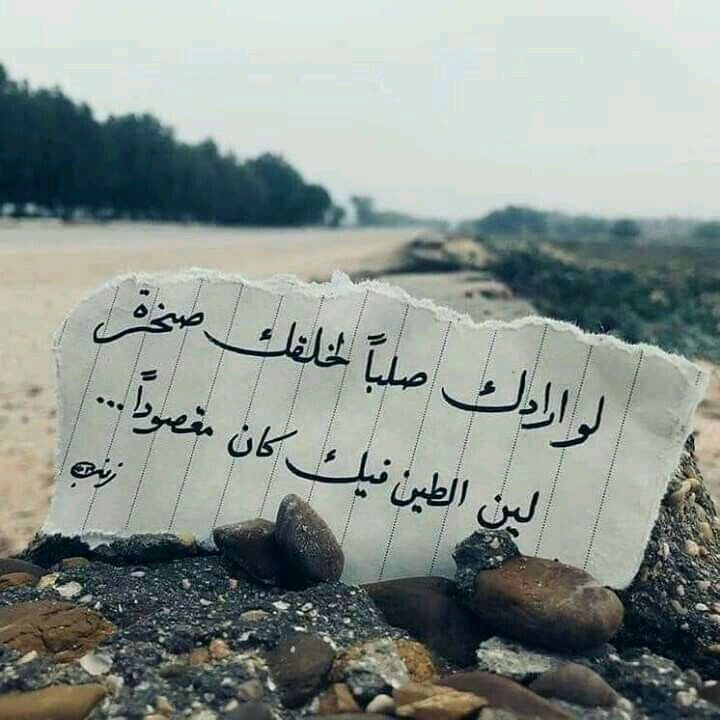 لو ارادك صلباً لخلقك صخرة
لين الطين فيك كان مقصوداً...
زينب